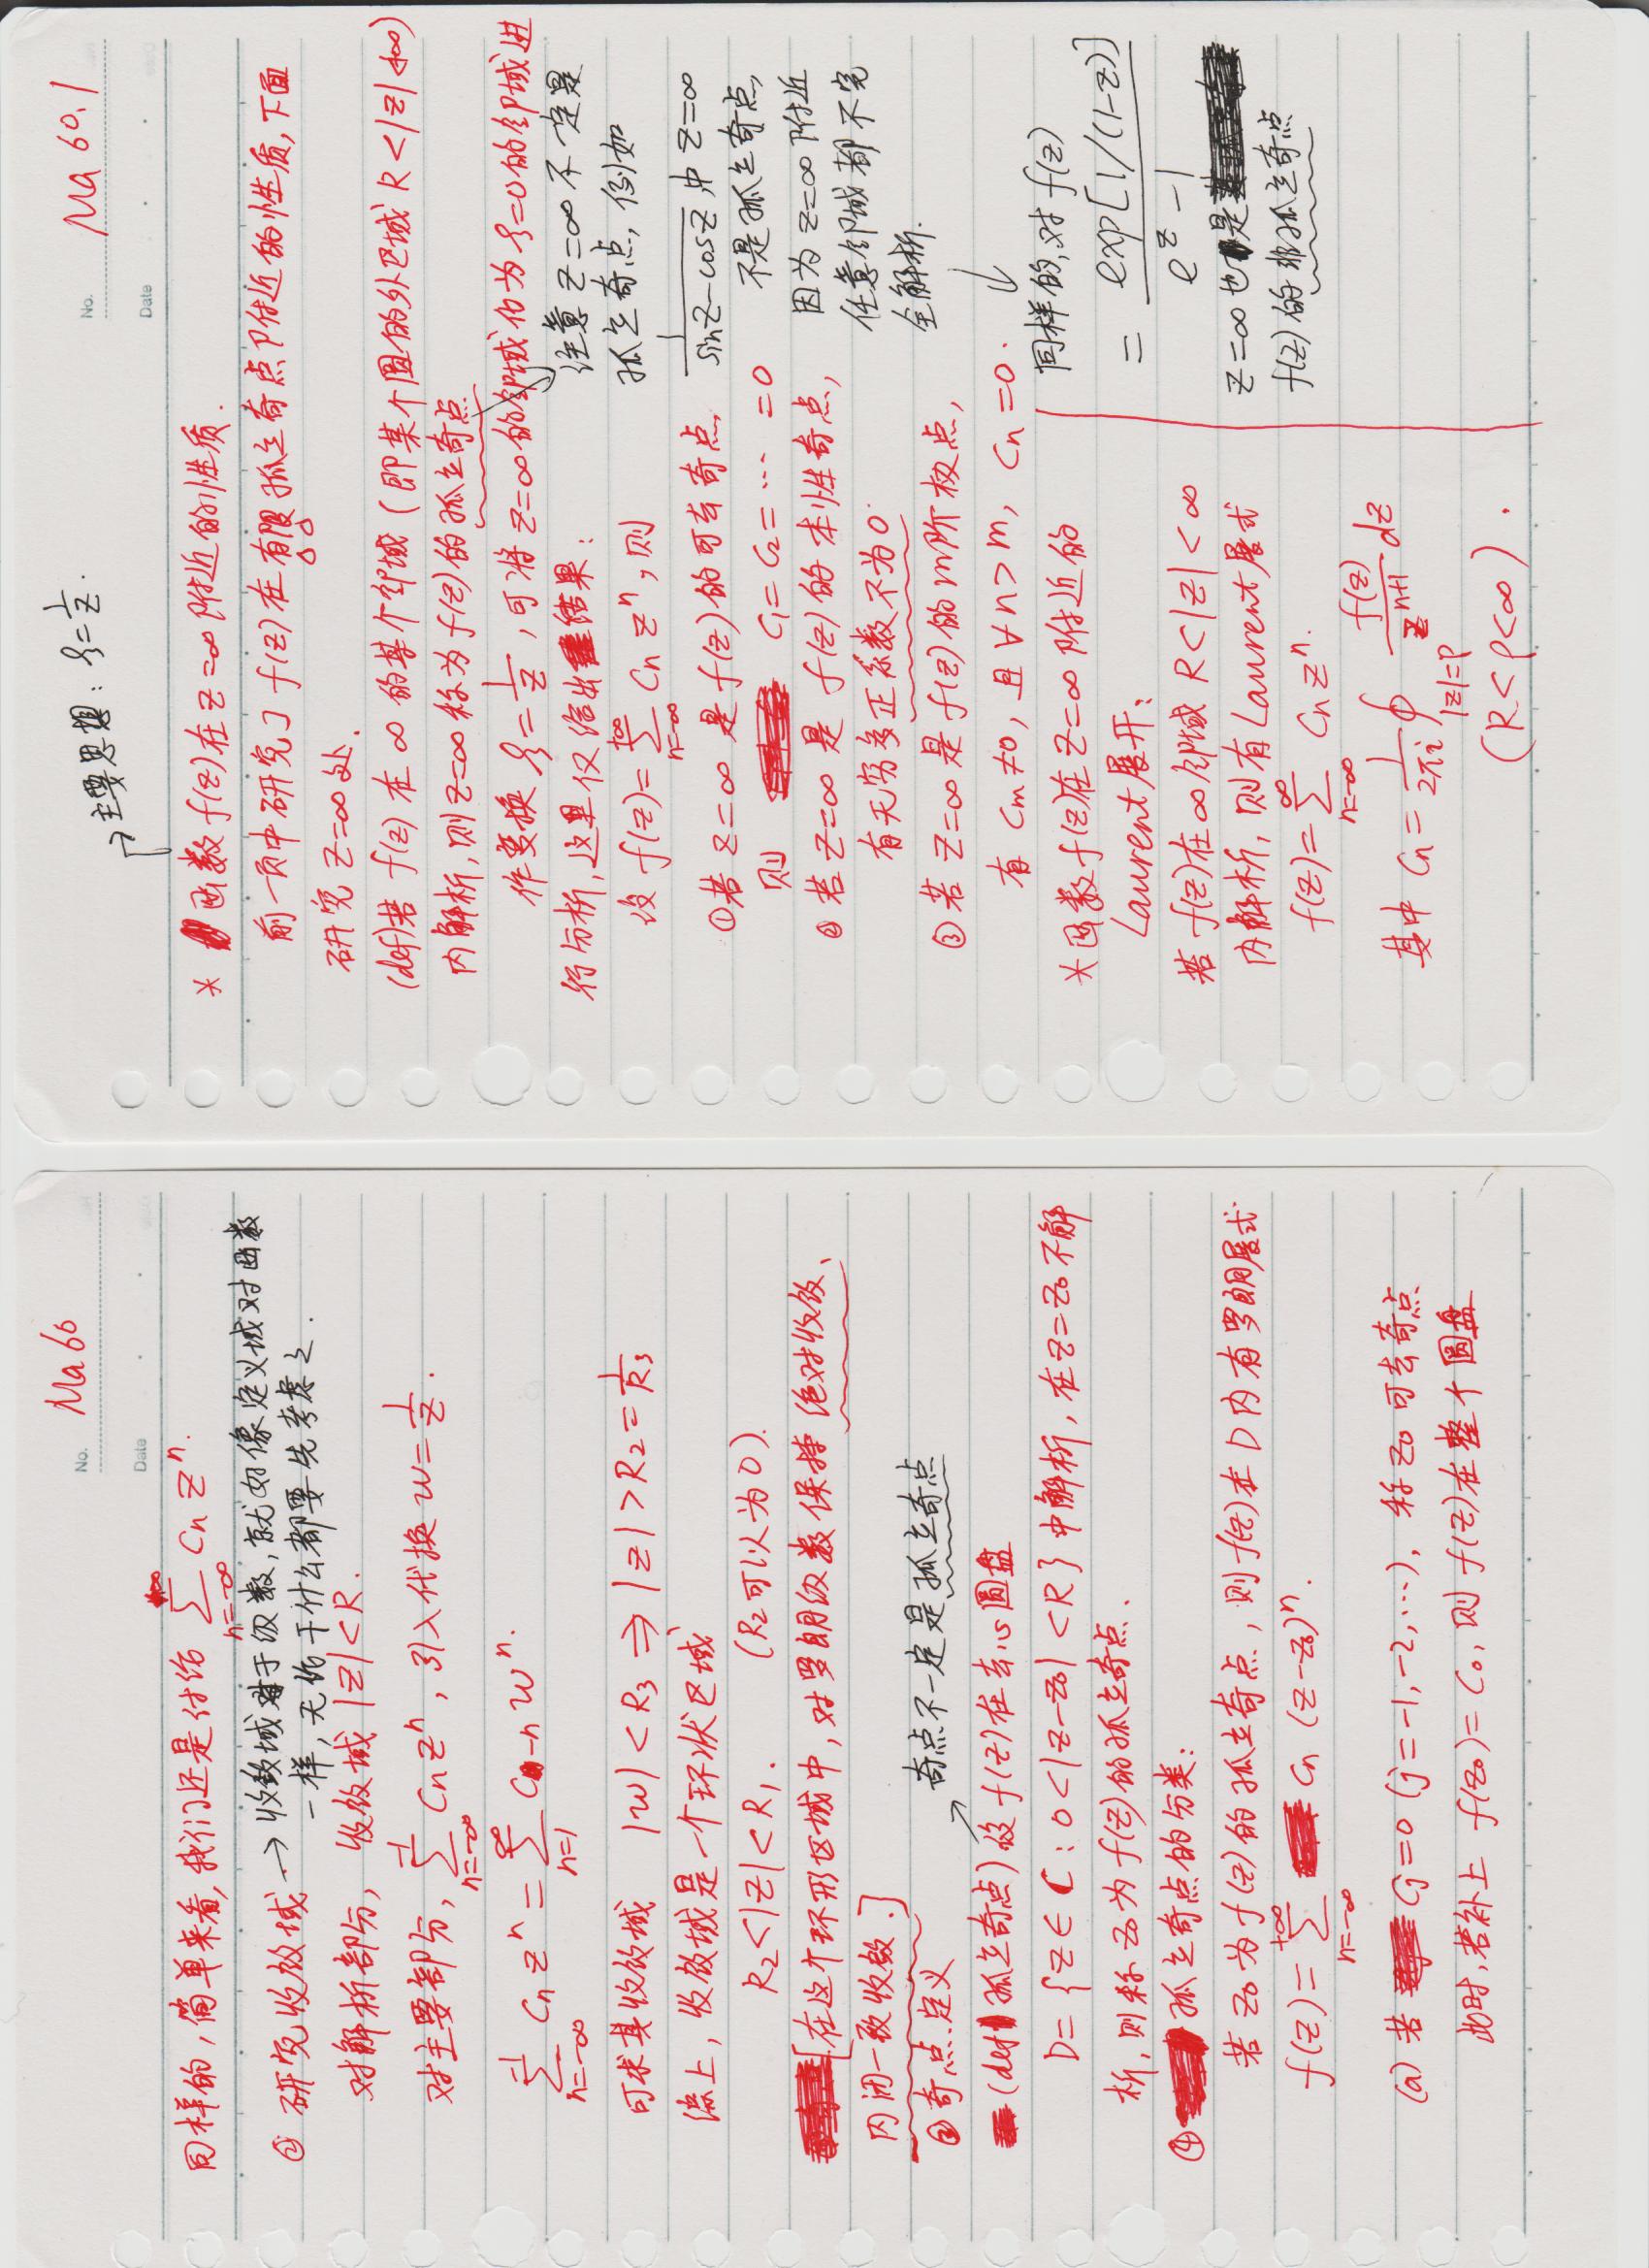 No. Ma 60
Date
同样的，简单来看，我们还是讨论 $\sum_{n=-\infty}^{+\infty} C_n z^n$.
② 研究收敛域 → 收敛域对于级数，就好像定义域对函数
一样，无论干什么都要先考虑之.
对解析部分，收敛域 |z|<R.
对主要部分，$\sum_{n=-\infty}^{-1} C_n z^n$，引入代换 $w=\frac{1}{z}$.
$\sum_{n=-\infty}^{-1} C_n z^n = \sum_{n=1}^{\infty} C_{-n} w^n$.
可求其收敛域 $|w|<R_3 \Rightarrow |z|>R_2=\frac{1}{R_3}$
综上，收敛域是一个环状区域
$R_2<|z|<R_1$. （$R_2$可以为0）.
[在这个环形区域中，对罗朗级数保持绝对收敛、
内闭一致收敛.]
③ 奇点定义
奇点不一定是孤立奇点
(def 孤立奇点) 设 f(z) 在去心圆盘
$D=\{z\in C: 0<|z-z_0|<R\}$ 中解析，在 $z=z_0$ 不解
析，则称 $z_0$ 为 f(z) 的孤立奇点.
④ 孤立奇点的分类：
若 $z_0$ 为 f(z) 的孤立奇点，则 f(z) 在 D 内有罗朗展式
$f(z)=\sum_{n=-\infty}^{+\infty} C_n (z-z_0)^n$.
(a) 若 $C_j=0$ (j=-1,-2,⋯)，称 $z_0$ 可去奇点
此时，若补上 $f(z_0)=C_0$，则 f(z) 在整个圆盘
No. Ma 60.1
Date
主要思想：$\zeta=\frac{1}{z}$.
* 函数 f(z) 在 z=∞ 附近的性质.
前一页中研究了 f(z) 在有限孤立奇点附近的性质，下面
研究 z=∞ 处.
(def) 若 f(z) 在 ∞ 的某个邻域（即某个圆的外区域 R<|z|<+∞）
内解析，则 z=∞ 称为 f(z) 的孤立奇点
作变换 $\zeta=\frac{1}{z}$，可将 z=∞ 的邻域化为 ζ=0 的邻域进
行分析，这里仅给出结果：
设 $f(z)=\sum_{n=-\infty}^{+\infty} C_n z^n$，则
① 若 z=∞ 是 f(z) 的可去奇点，
则 $C_1=C_2=\cdots=0$
② 若 z=∞ 是 f(z) 的本性奇点，
有无穷多正系数不为0.
③ 若 z=∞ 是 f(z) 的 m 阶极点，
有 $C_m\neq 0$，且 ∀n>m，$C_n=0$.
* 函数 f(z) 在 z=∞ 附近的
Laurent 展开：
若 f(z) 在 ∞ 邻域 R<|z|<∞
内解析，则有 Laurent 展式
$f(z)=\sum_{n=-\infty}^{\infty} C_n z^n$.
其中 $C_n=\frac{1}{2\pi i}\oint_{|z|=\rho} \frac{f(z)}{z^{n+1}}dz$
(R<ρ<∞).
注意 z=∞ 不一定是
孤立奇点，例如
$\frac{1}{\sin z-\cos z}$ 中 z=∞
不是孤立奇点，
因为 z=∞ 附近
任意邻域都不完
全解析.
同样的，对 f(z)
$=\frac{exp[1/(1-z)]}{e^z-1}$
z=∞ 也是
f(z) 的非孤立奇点